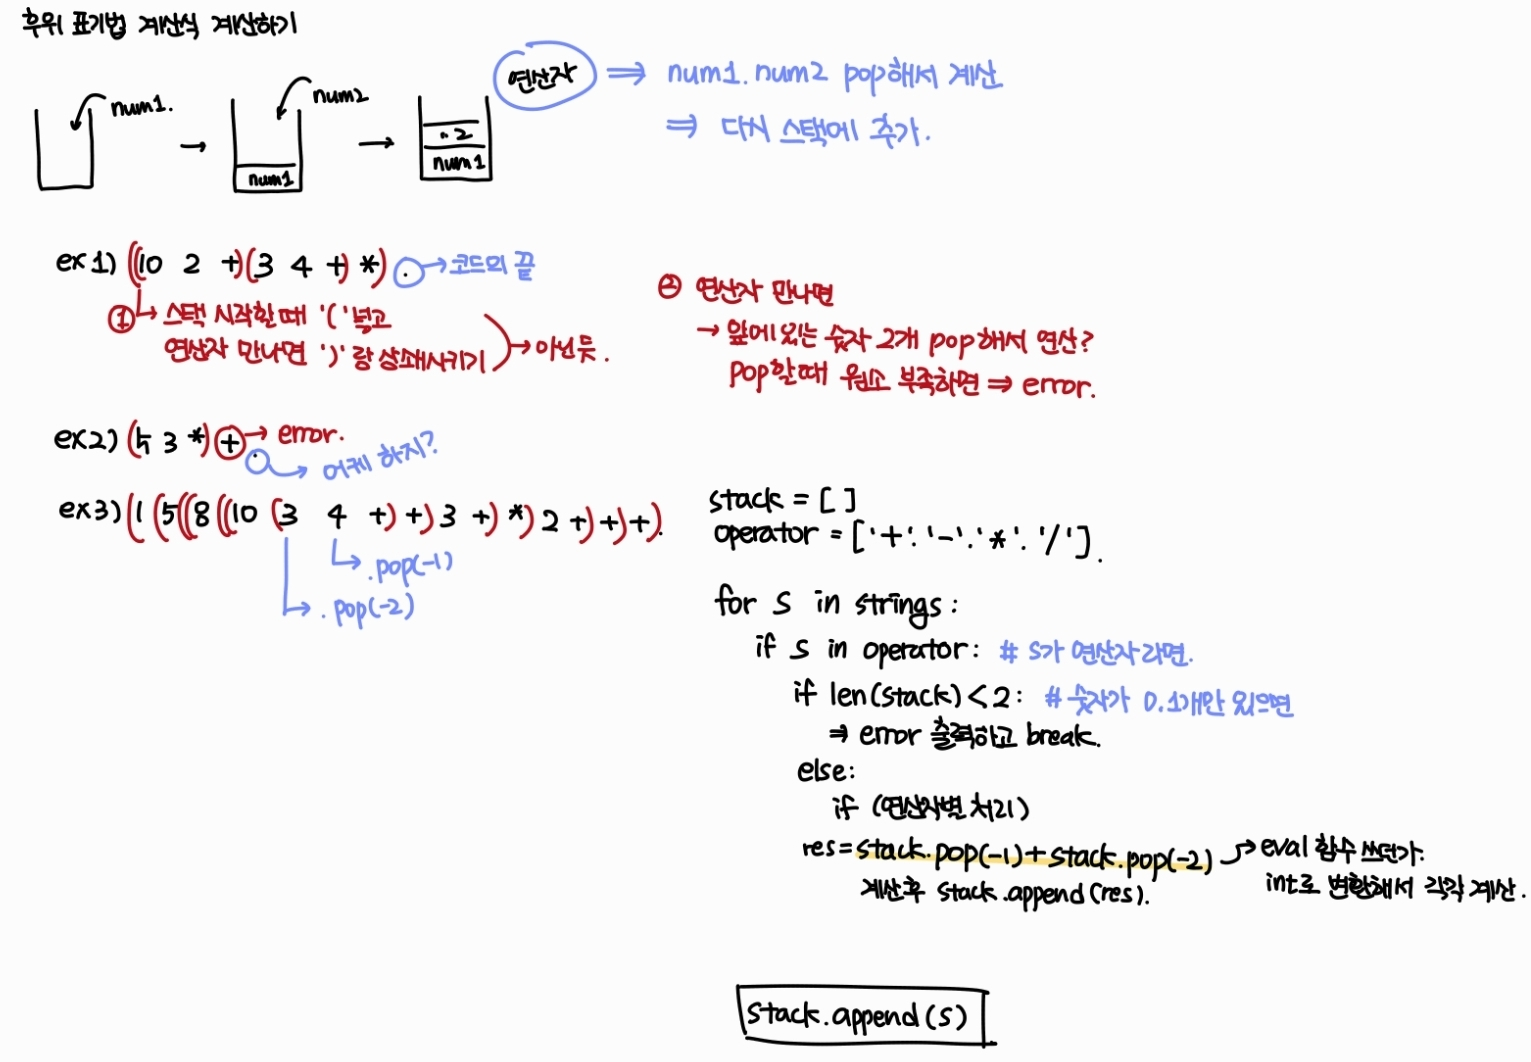 후위 표기법 계산식 계산하기
num1.
num2
연산자 ⇒ num1. num2 pop해서 계산
⇒ 다시 스택에 추가.
→
num1
→
〃 2
num1
ex1) ((10 2 +)(3 4 +) *) . → 코드의 끝
① 스택 시작할때 '(' 넣고
연산자 만나면 ')' 랑 상쇄시키기 → 아닌듯.
② 연산자 만나면
→ 앞에 있는 숫자 2개 pop해서 연산?
pop할때 원소 부족하면 ⇒ error.
ex2) (5 3 *) + → error.
. → 어케 하지?
ex3) (1 (5 ((8 ((10 (3 4 +) +) 3 +) *) 2 +) +) +).
.pop(-1)
.pop(-2)
stack = [ ]
operator = ['+'. '-'. '*'. '/'].
for s in strings :
if s in operator: # s가 연산자라면.
if len(stack) < 2: # 숫자가 0.1개만 있으면
⇒ error 출력하고 break.
else:
if (연산자별 처리)
res = stack.pop(-1) + stack.pop(-2) → eval 함수 쓰던가.
계산후 stack.append(res).
int로 변환해서 각각 계산.
stack.append(s)